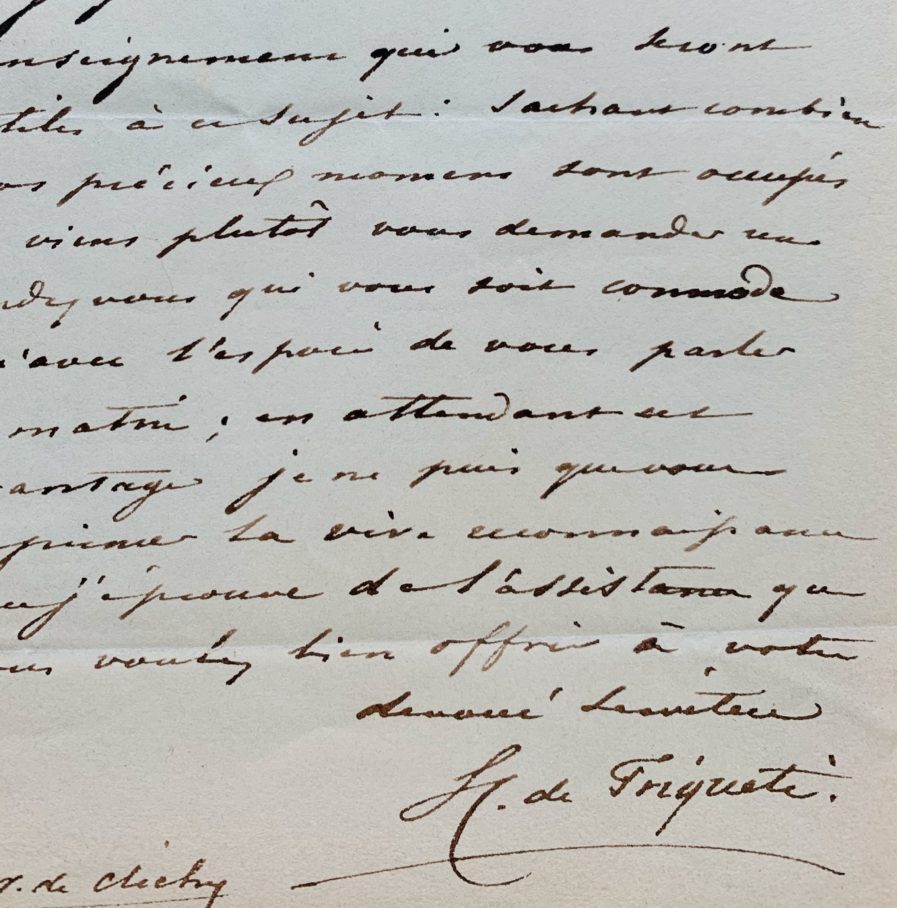 enseignemens qui vous seront
tiles à ce sujet : Sachant combien
os précieux momens sont occupés
viens plutôt vous demander un
ndez vous qui vous soit commode
avec l'espoir de vous parler
matin ; en attendant cet
vantage je ne puis que vous
primer la vive reconnaissance
que j'éprouve de l'assistance que
ous voulez bien offrir à votre
devoué serviteur
H. de Triqueti.
r. de Clichy